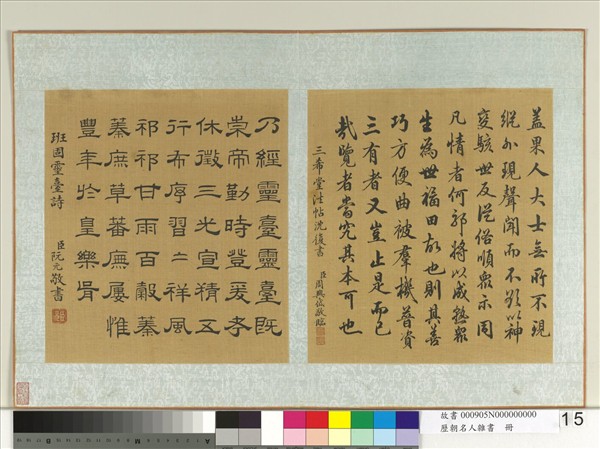 蓋果人大士無所不現
縱外現聲聞而不欲以神
變駭世反從俗順眾示同
凡情者何耶將以成熟眾
生為世福田故也則其善
巧方便曲被羣機普資
三有者又豈止是而已
哉覽者當究其本可也
三希堂法帖沈復書
臣周興岱敬臨
乃經靈臺靈臺既
崇帝勤時登爰考
休徵三光宣精五
行布序習〻祥風
祁祁甘雨百穀蓁
蓁庶草蕃廡屢惟
豐年於皇樂胥
班固靈臺詩
臣阮元敬書
故書 000905N000000000
歷朝名人雜書 冊
15